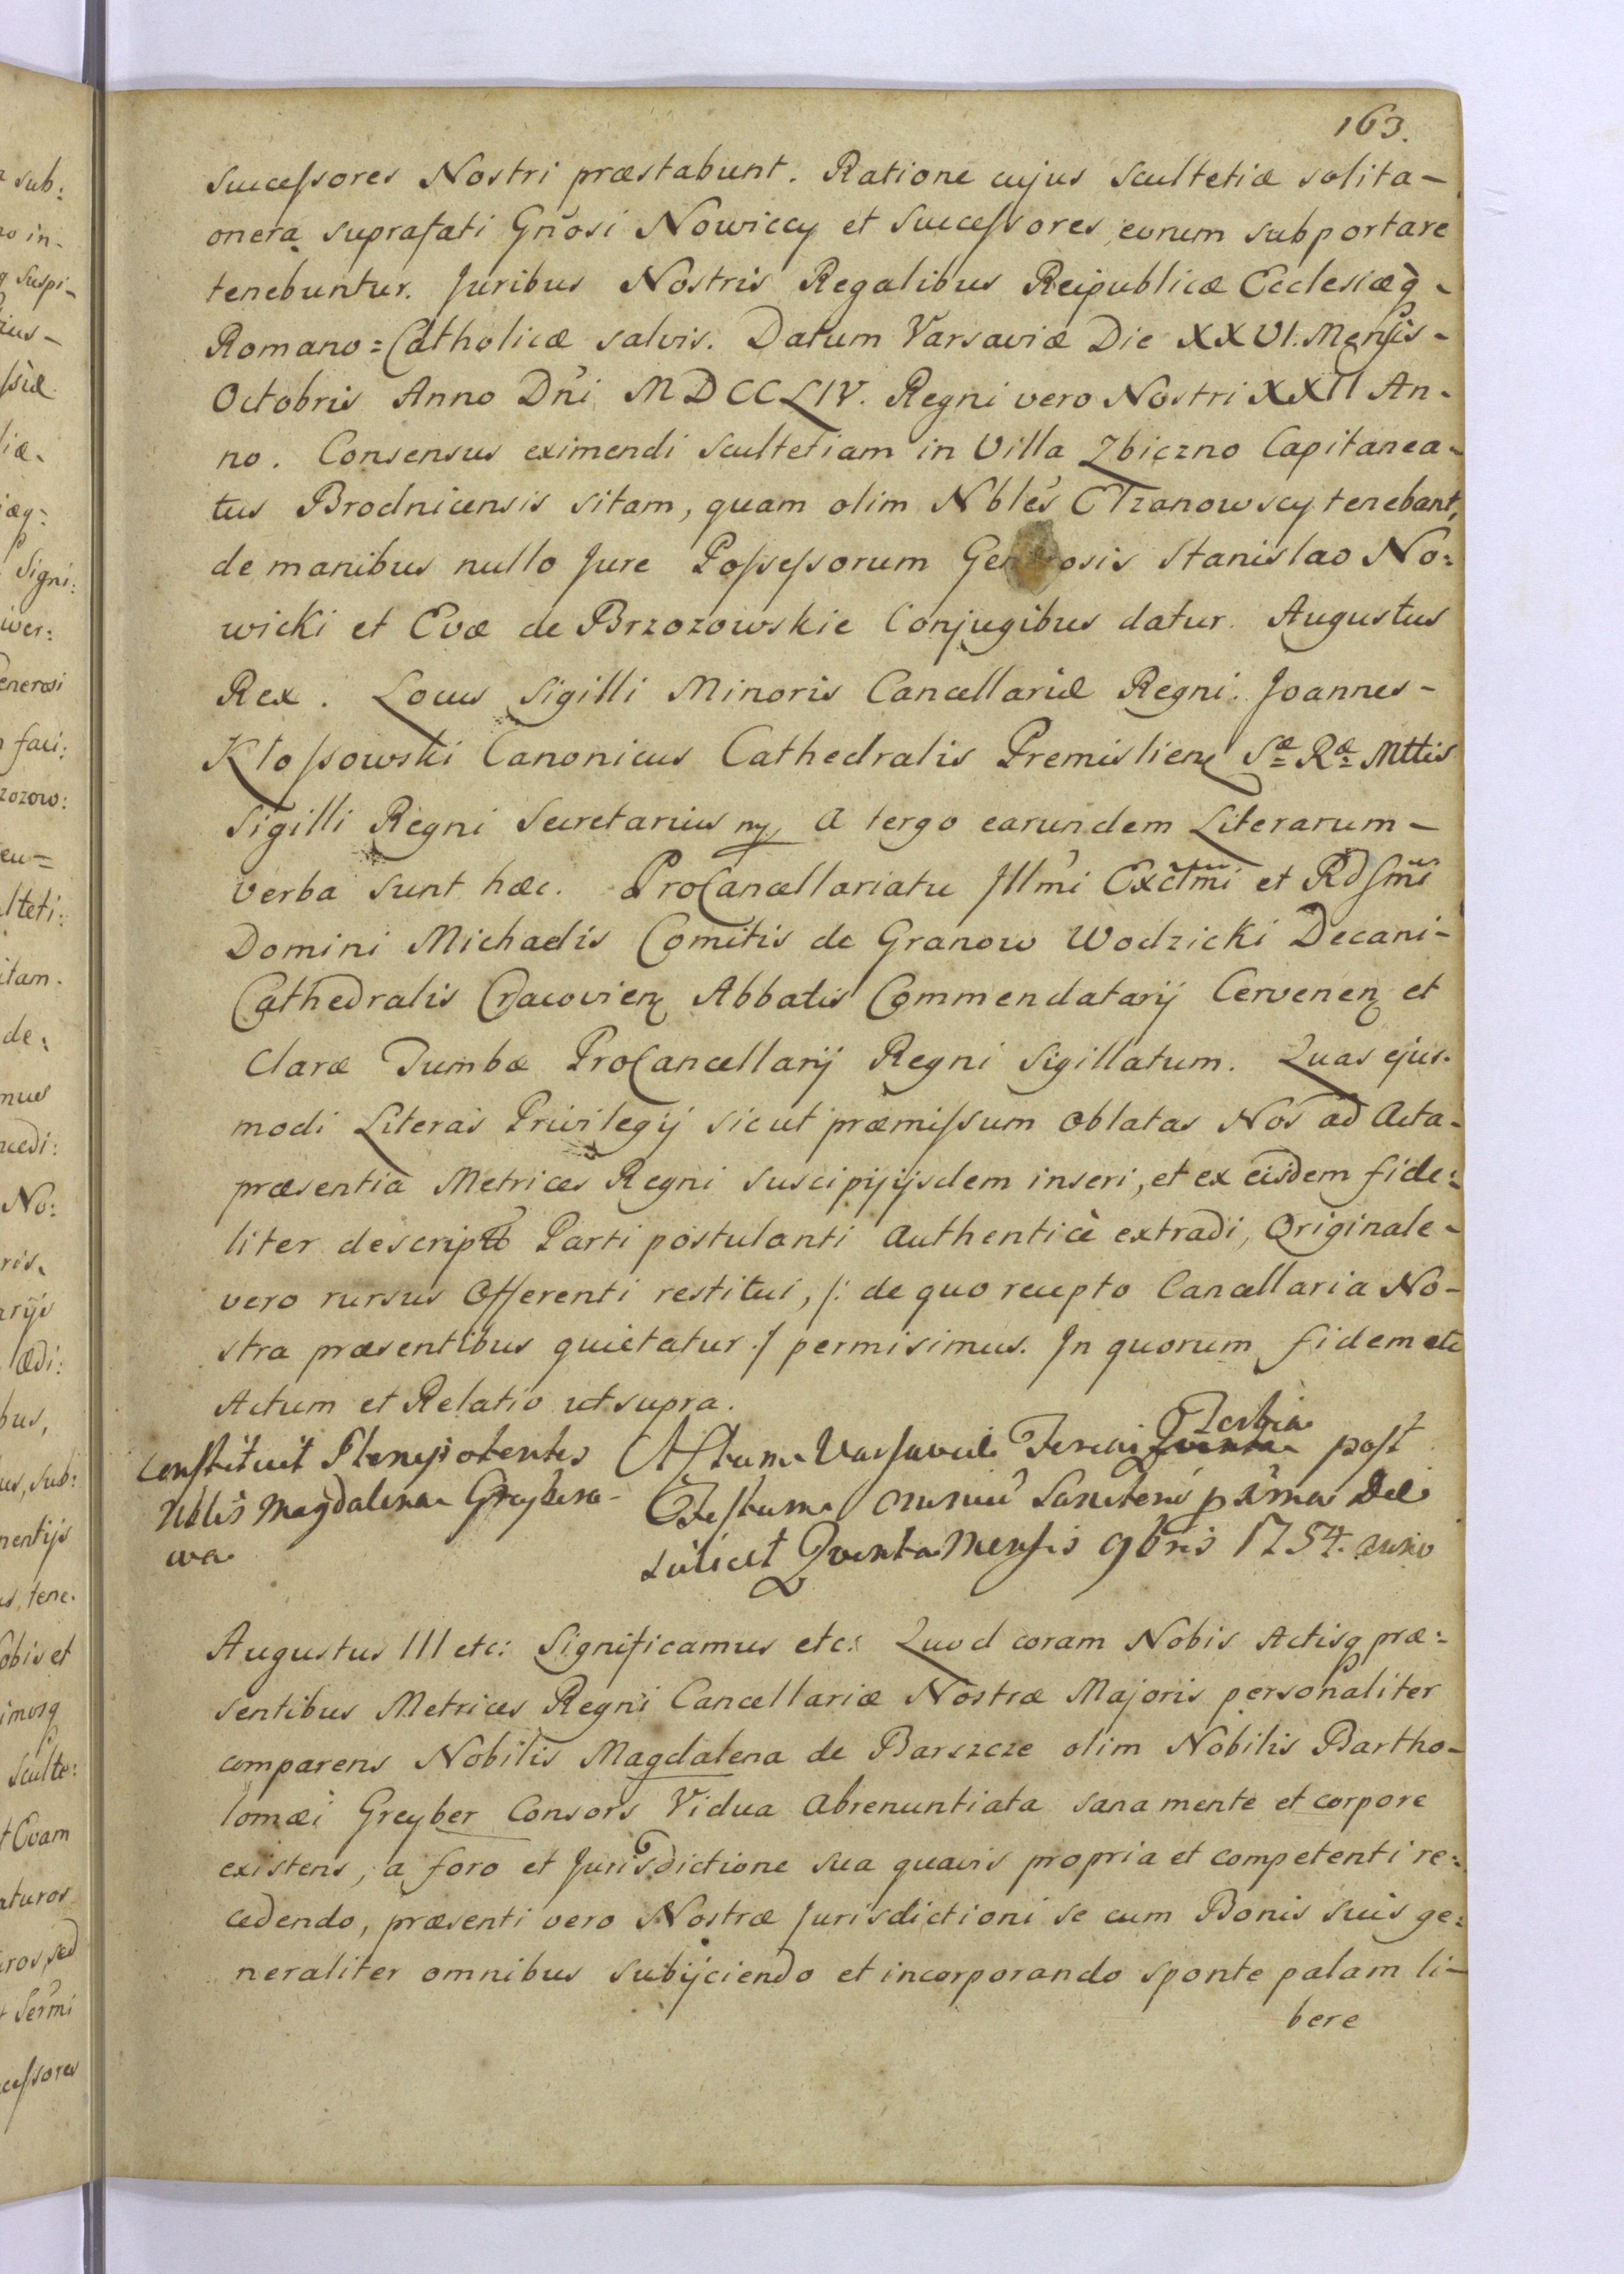 163.
successores Nostri præstabunt. Ratione cujus Scultetiæ solita-
onera suprafati Gnosi Nowiccy et Successores eorum subportare
tenebuntur. Juribus Nostris Regalibus Reipublicæ Ecclesiæq̀-
Romano=Catholicæ salvis. Datum Varsaviæ Die XXVI. Mensis-
Octobris Anno Dni MDCCLIV. Regni vero Nostri XXII An-
no. Consensus eximendi Scultetiam in Villa Zbiczno Capitanea-
tus Brodnicensis sitam, quam olim Nbles Ctzanowscy tenebant,
de manibus nullo Jure Possessorum Generosis Stanislao No:
wicki et Evæ de Brzozowskie Conjugibus datur. Augustus
Rex. Locus Sigilli Minoris Cancellariæ Regni. Joannes-
Kłossowski Canonicus Cathedralis Premislienz Sæ Ræ Mttis
Sigilli Regni Secretarius mp A tergo earundem Literarum-
verba sunt hæc. ProCancellariatu Illmi Exctmi et Rdsmi
Domini Michaelis Comitis de Granow Wodzicki Decani-
Cathedralis Cracovienz Abbatis Commendatarij Cervenenz et
Claræ Tumbæ ProCancellarij Regni Sigillatum. Quas ejus-
modi Literas Privilegij sicut præmissum oblatas Nos ad Acta-
præsentia Metrices Regni suscipi, ijsdem inseri, et ex eisdem fide:
liter descripto Parti postulanti Authenticè extradi, Originale-
vero rursus Offerenti restitui, /: de quo recepto Cancellaria No-
stra præsentibus quietatur :/ permisimus. In quorum fidem etc
Actum et Relatio ut supra.
Constituit Plenipotentes
Nblis Magdalena Greyberо-
wa
Actum Varsaviæ Feria Tertia Quinta post
Festum omniu Sanctoru prima Die
scilicet Quinta Mensis 9bris 1754. anno
Augustus III etc: Significamus etc: Quod coram Nobis Actisq præ:
sentibus Metrices Regni Cancellariæ Nostræ Majoris personaliter
comparens Nobilis Magdalena de Barszcze olim Nobilis Bartho-
lomæi Greyber Consors Vidua Abrenuntiata sana mente et corpore
existens, a foro et Jurisdictione sua quavis propria et competenti re:
cedendo, præsenti vero Nostræ Jurisdictioni se cum Bonis suis ge:
neraliter omnibus subijciendo et incorporando sponte palam li-
bere